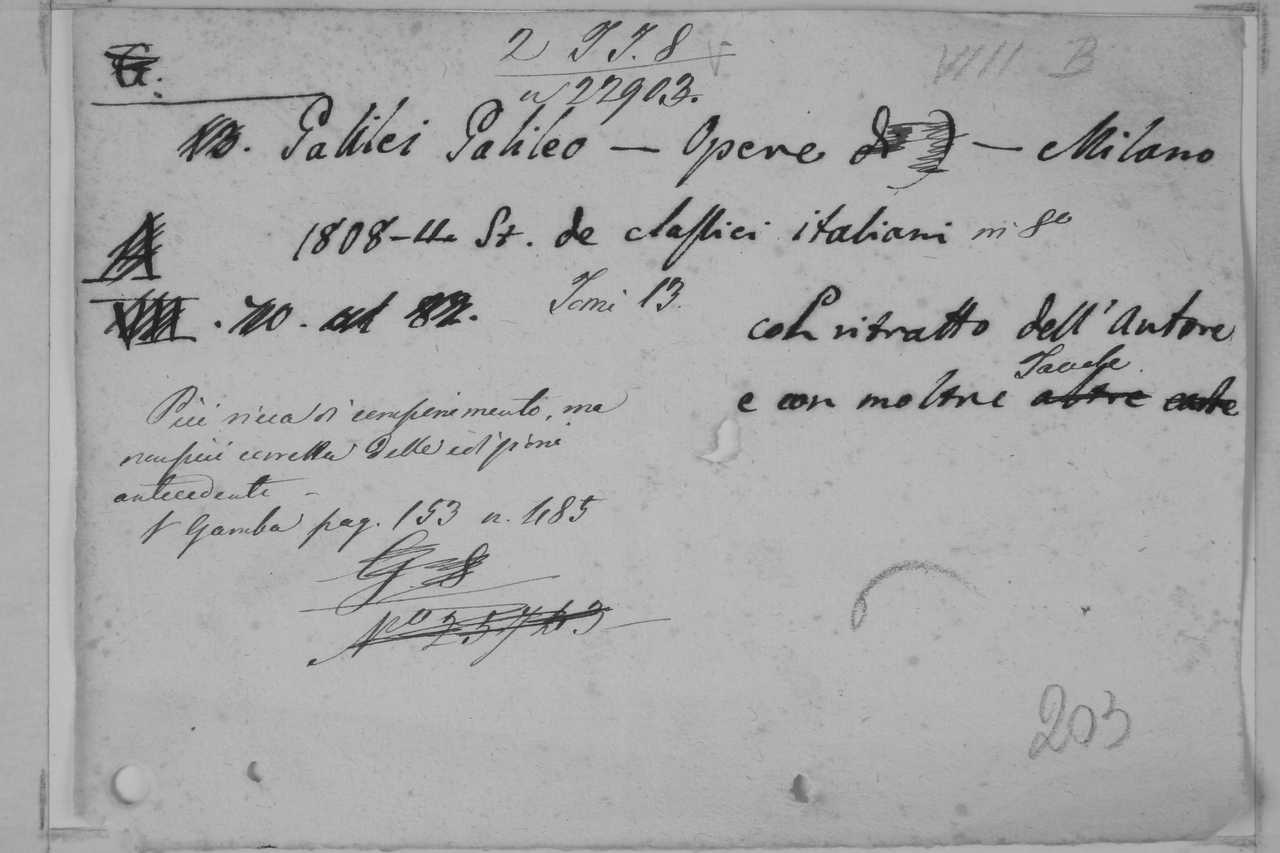 2 TT. 8
VIII B
G.
n 22903.
13. Galilei Galileo — Opere di ) — Milano
1808-11. St. de classici italiani in 8º
VIII . 70. al 82. Tomi 13.
col ritratto dell'Autore
Tavole.
e con moltre altre carte
Più ricca di componimento, ma
non più corretta delle edizioni
antecedenti -
V Gamba pag. 153 n. 485
G 8
Nº 25763
203